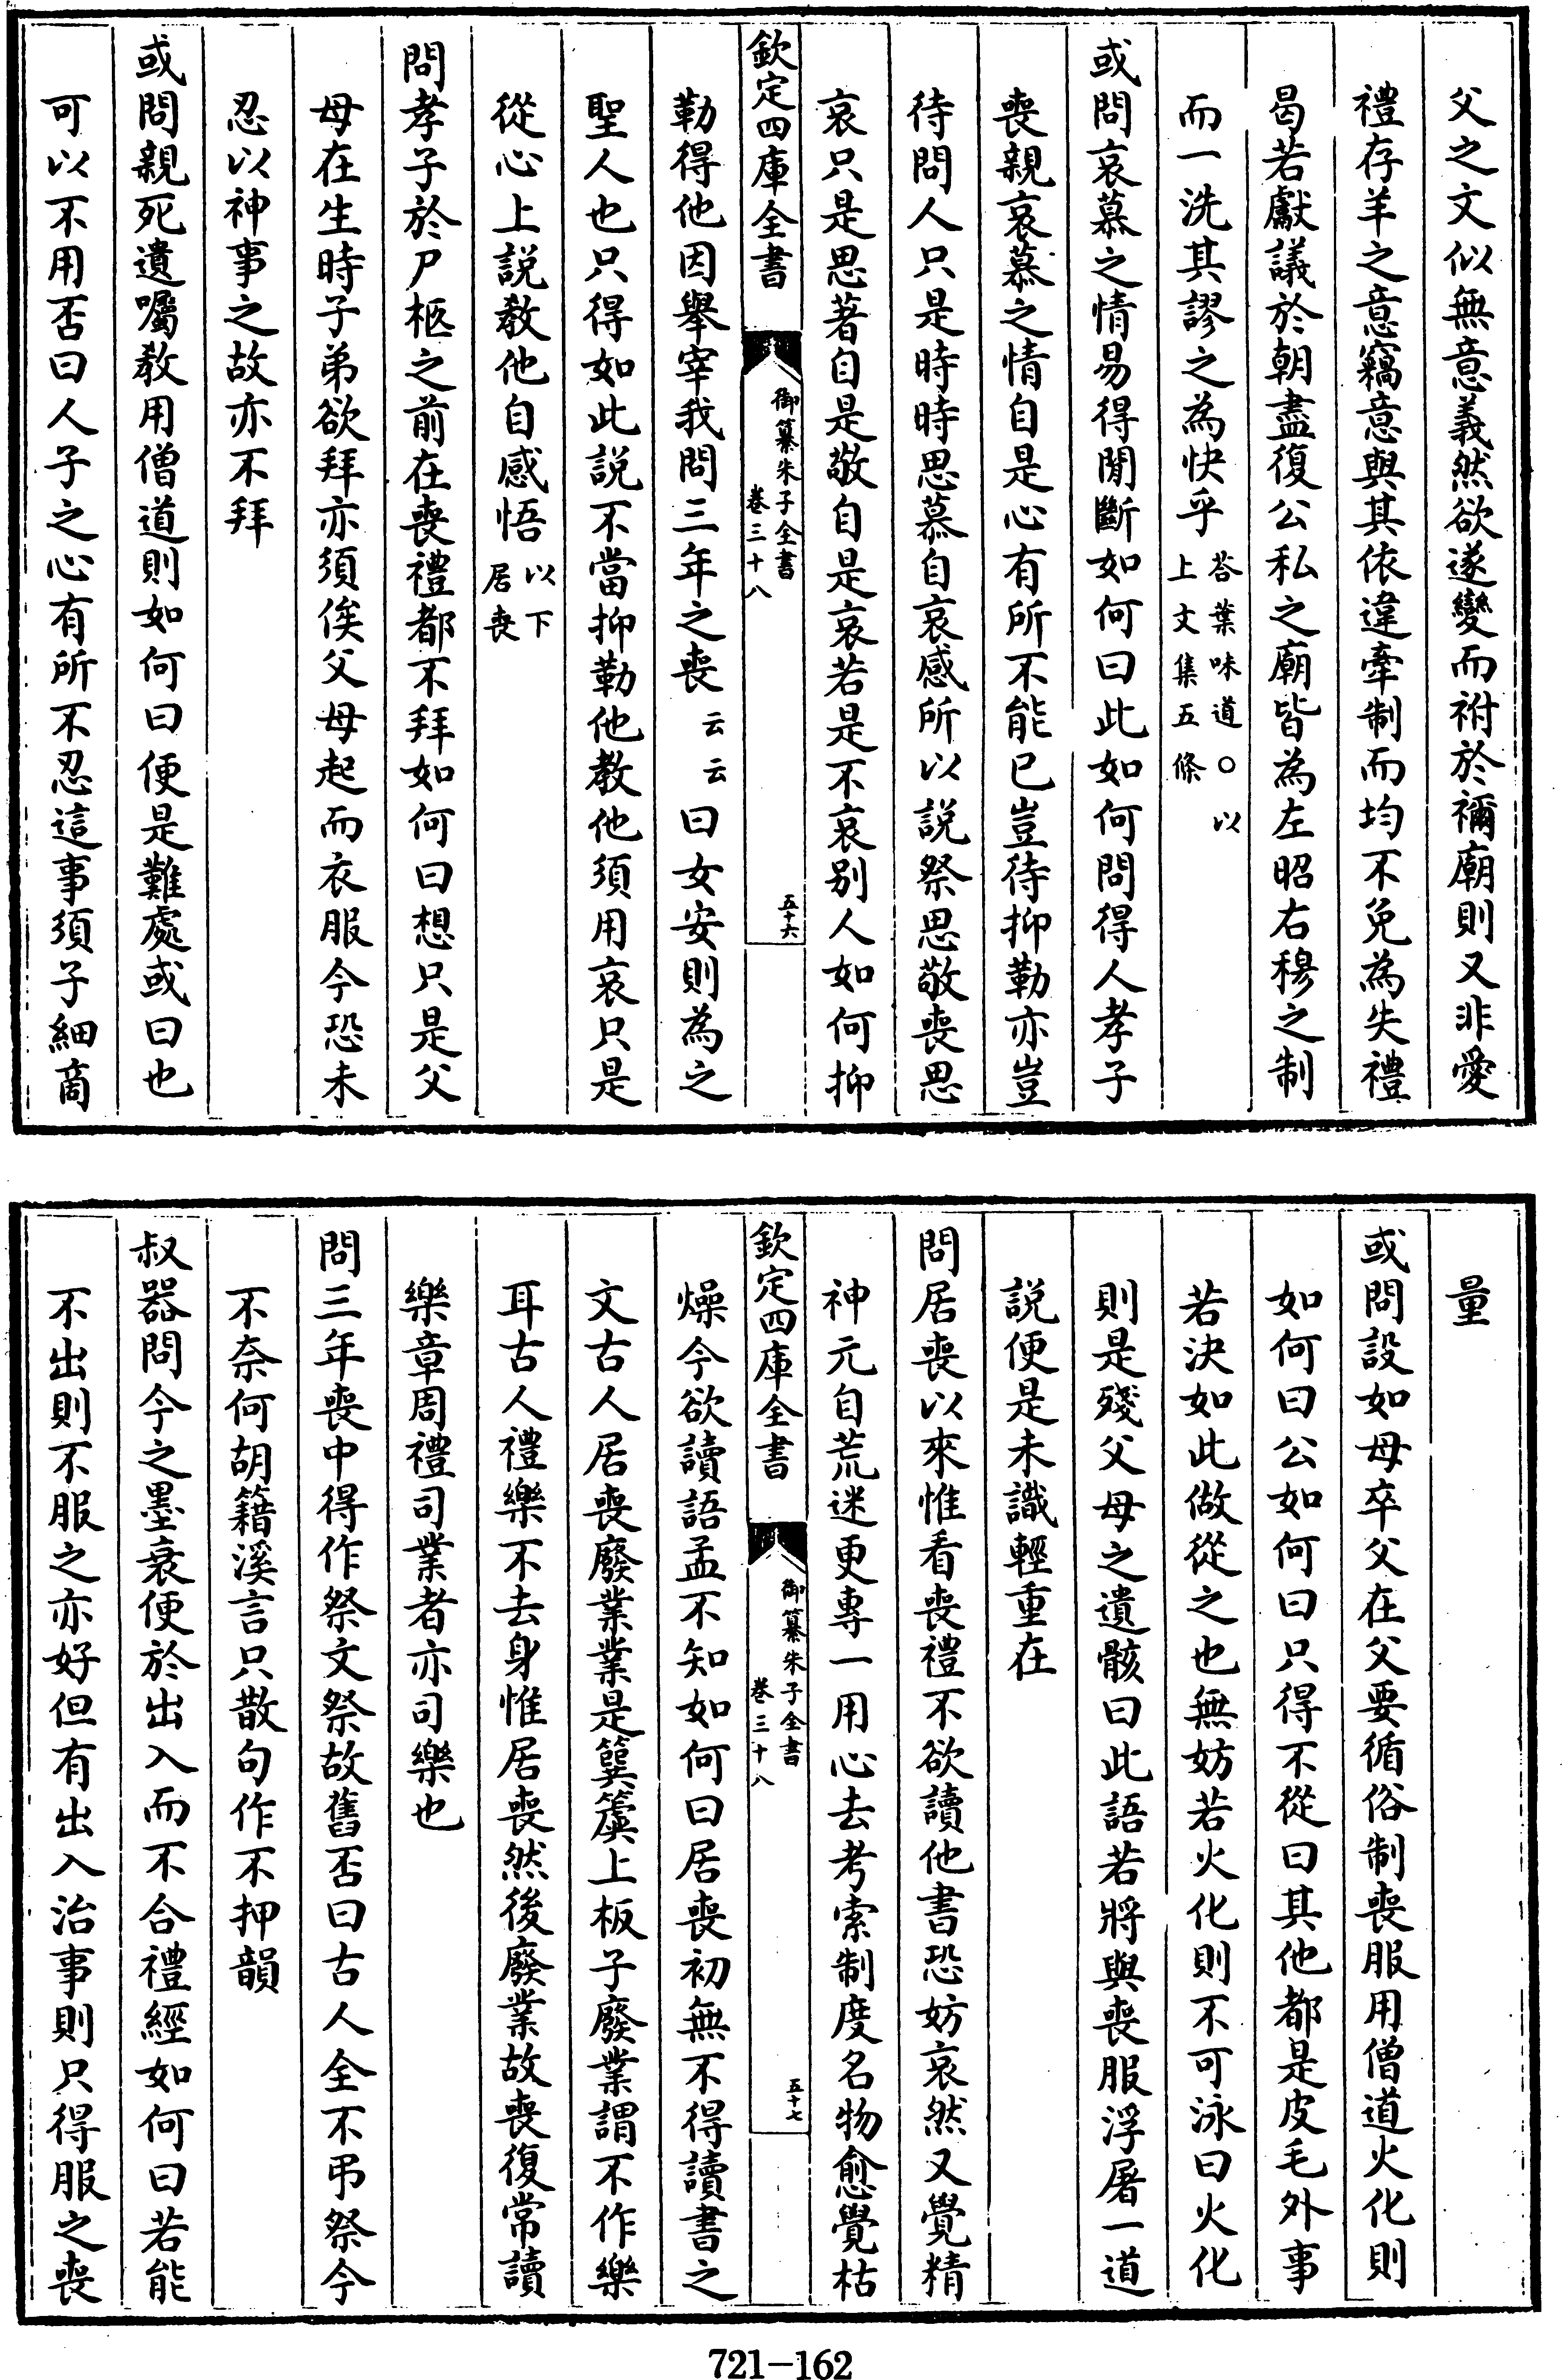 父之文似無意義然欲遂變而祔於禰廟則又非愛
禮存羊之意竊意與其依違牽制而均不免為失禮
曷若獻議於朝盡復公私之廟皆為左昭右穆之制
而一洗其謬之為快乎答葉味道○以上文集五條
或問哀慕之情易得間斷如何曰此如何問得人孝子
喪親哀慕之情自是心有所不能已豈待抑勒亦豈
待問人只是時時思慕自哀感所以說祭思敬喪思
哀只是思著自是敬自是哀若是不哀别人如何抑
欽定四庫全書 御纂朱子全書 卷三十八 五十六
勒得他因舉宰我問三年之喪云云曰女安則為之
聖人也只得如此說不當抑勒他教他須用哀只是
從心上説教他自感悟以下居喪
問孝子於尸柩之前在喪禮都不拜如何曰想只是父
母在生時子弟欲拜亦須俟父母起而衣服今恐未
忍以神事之故亦不拜
或問親死遺囑教用僧道則如何曰便是難處或曰也
可以不用否曰人子之心有所不忍這事須子細商
量
或問設如母卒父在父要循俗制喪服用僧道火化則
如何曰公如何曰只得不從曰其他都是皮毛外事
若決如此做從之也無妨若火化則不可泳曰火化
則是殘父母之遺骸曰此語若將與喪服浮屠一道
說便是未識輕重在
問居喪以來惟看喪禮不欲讀他書恐妨哀然又覺精
神元自荒迷更專一用心去考索制度名物愈覺枯
欽定四庫全書 御纂朱子全書 卷三十八 五十七
燥今欲讀語孟不知如何曰居喪初無不得讀書之
文古人居喪廢業業是簨簴上板子廢業謂不作樂
耳古人禮樂不去身惟居喪然後廢業故喪復常讀
樂章周禮司業者亦司樂也
問三年喪中得作祭文祭故舊否曰古人全不弔祭今
不奈何胡籍溪言只散句作不押韻
叔器問今之墨衰便於出入而不合禮經如何曰若能
不出則不服之亦好但有出入治事則只得服之喪
721-162